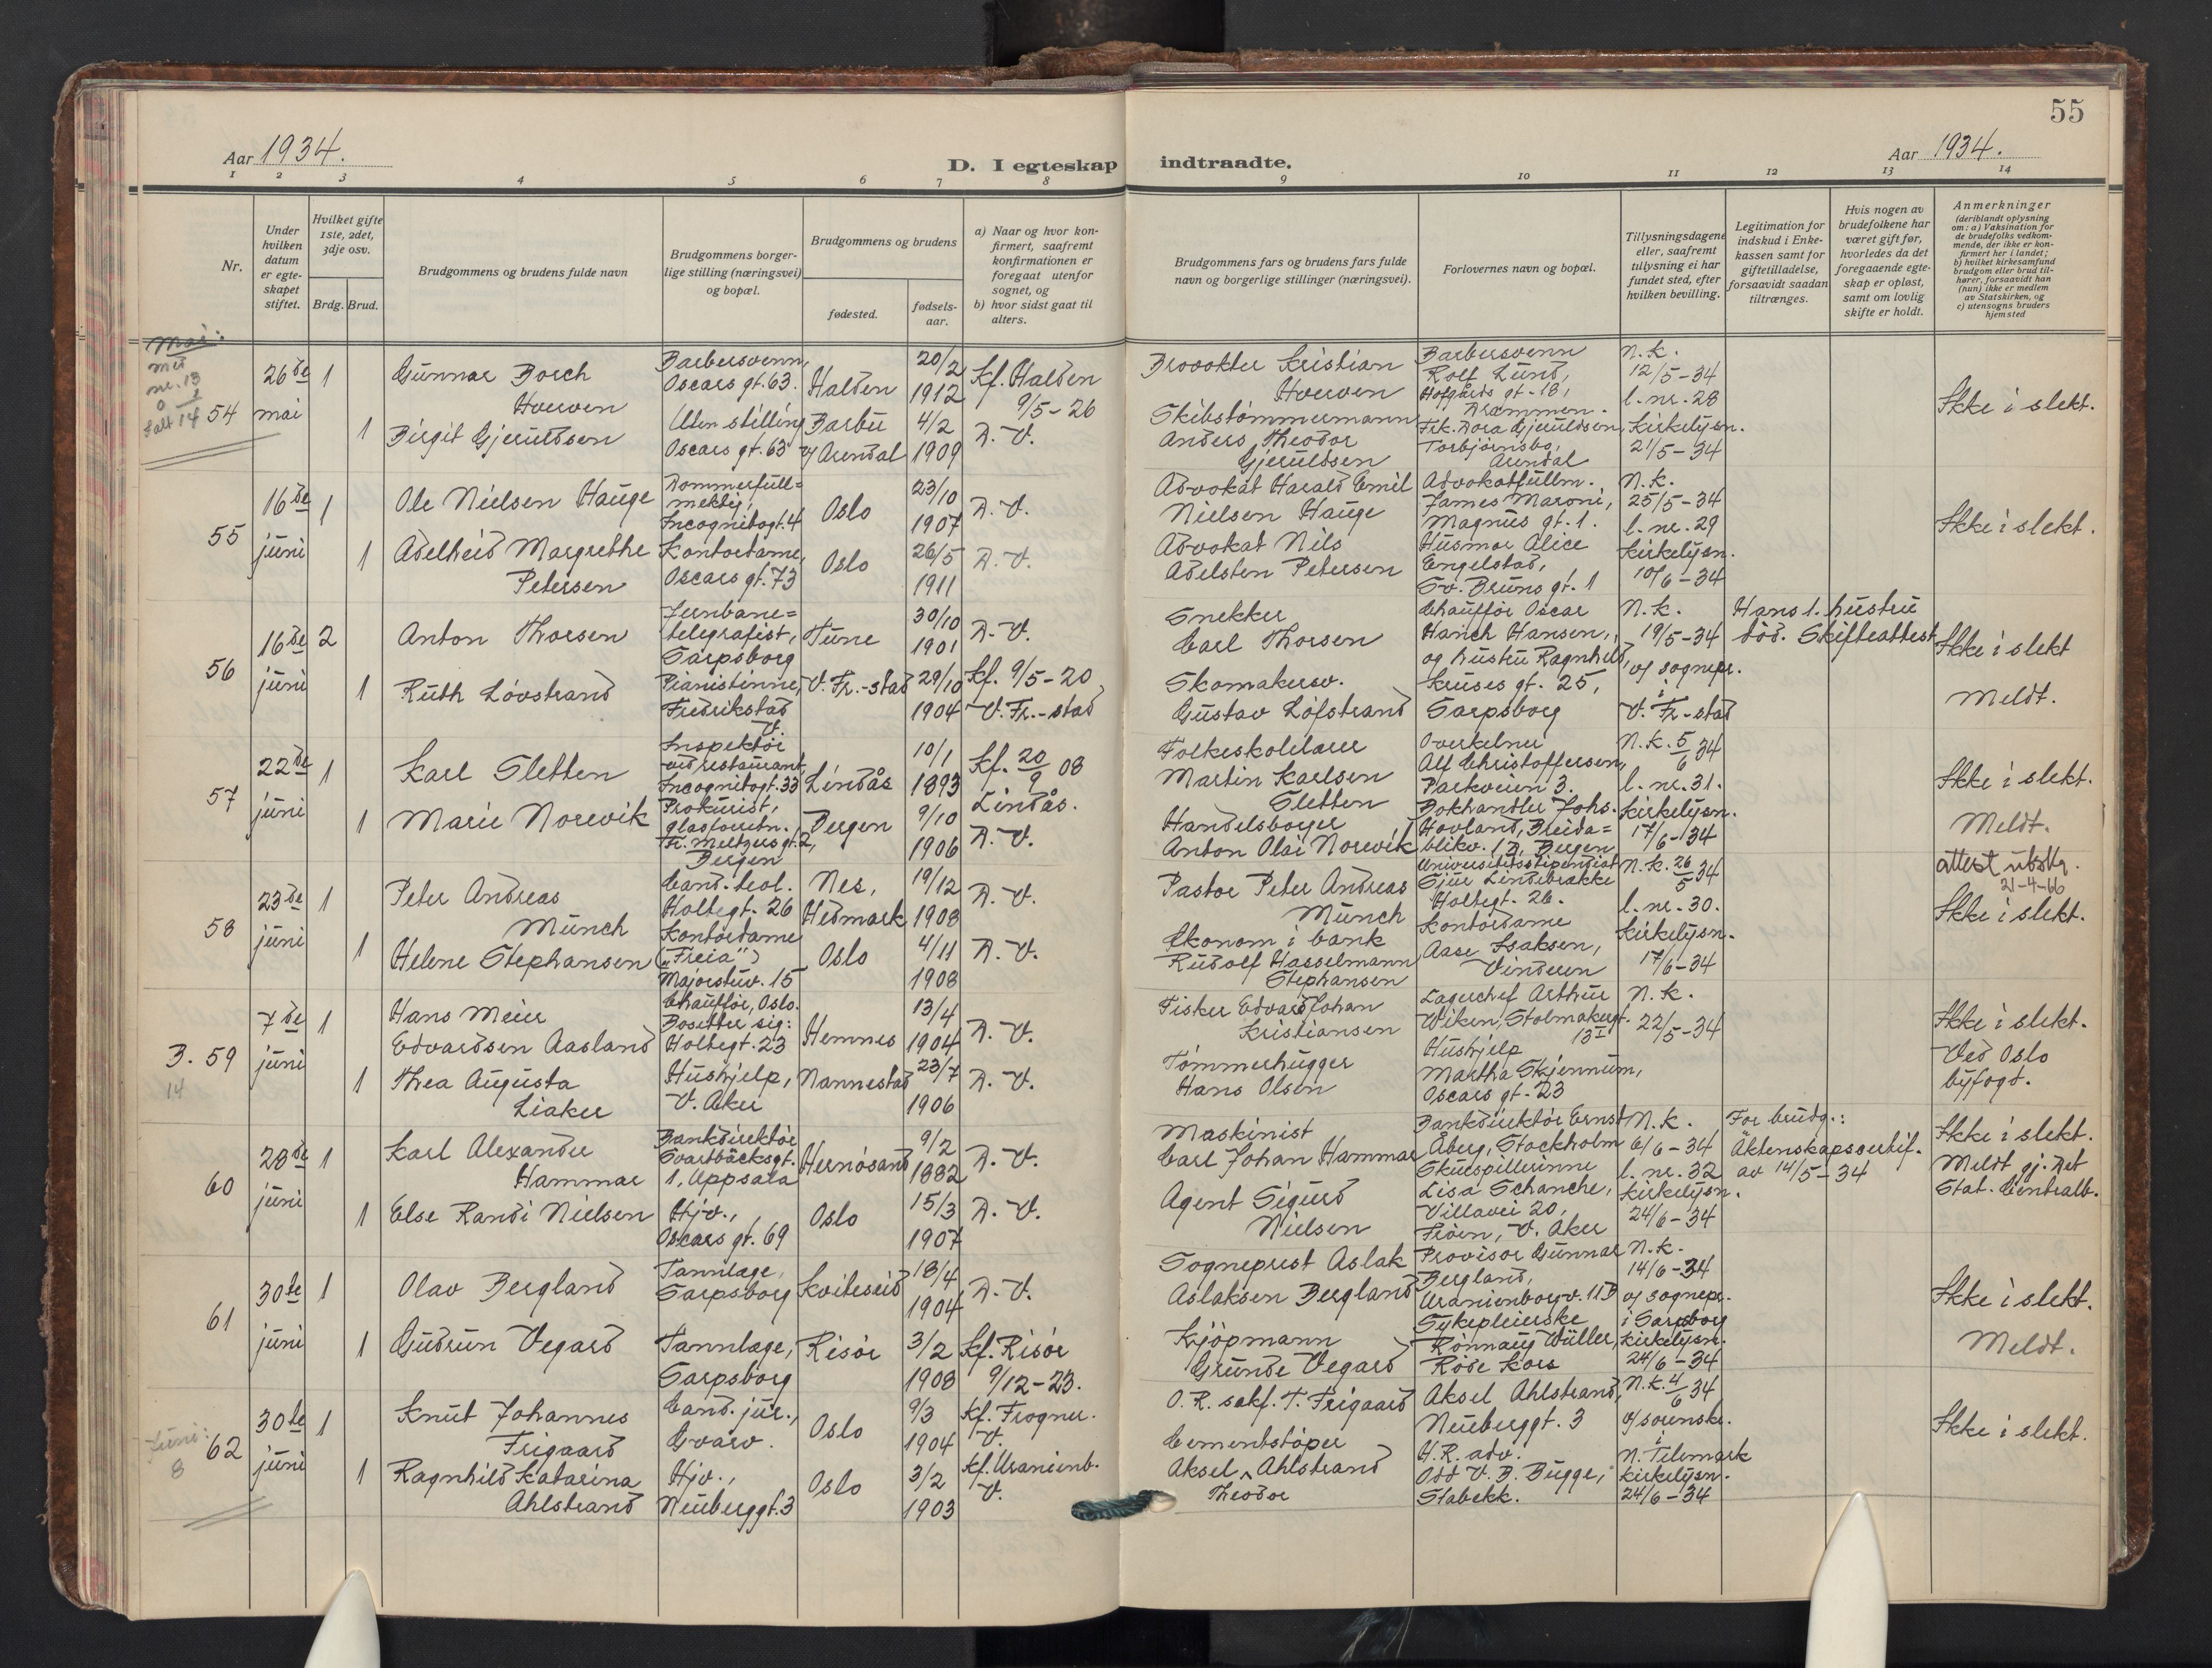 55
Aar 1934.
D. I egteskap indtraadte.
Aar 1934.
1 2 3 4 5 6 7 8 9 10 11 12 13 14
Nr.
Under hvilken datum er egteskapet stiftet.
Hvilket gifte 1ste, 2det, 3dje osv.
Brdg. Brud.
Brudgommens og brudens fulde navn
Brudgommens borgerlige stilling (næringsvei) og bopæl.
Brudgommens og brudens
fødested.
fødselsaar.
a) Naar og hvor konfirmert, saafremt konfirmationen er foregaat utenfor sognet, og
b) hvor sidst gaat til alters.
Brudgommens fars og brudens fars fulde navn og borgerlige stillinger (næringsvei).
Forlovernes navn og bopæl.
Tillysningsdagene eller, saafremt tillysning ei har fundet sted, efter hvilken bevilling.
Legitimation for indskud i Enkekassen samt for giftetilladelse, forsaavidt saadan tiltrænges.
Hvis nogen av brudefolkene har været gift før, hvorledes da det foregaaende egteskap er opløst, samt om lovlig skifte er holdt.
Anmerkninger
(deriblandt oplysning om: a) Vaksination for de brudefolks vedkommende, der ikke er konfirmert her i landet; b) hvilket kirkesamfund brudgom eller brud tilhører, forsaavidt han (hun) ikke er medlem av Statskirken, og c) utensogns bruders hjemsted
Mai:
nr. 13
14
54
26de mai
1
Gunnar Borch Hverven
Barbersvenn, Oscars gt. 63.
Halden
20/2 1912
Kf. Halden 9/5-26
1
Birgit Gjeruldsen
Uten stilling Oscars gt. 63
Barbu v/ Arendal
4/2 1909
D. V.
Kristian Hverven
Skibstømmermann Anders Theodor Gjeruldsen
Barbersvenn Rolf Lund, Hofgårds gt. 18, Drammen.
Frk. Dora Gjeruldsen, Torbjørnsbo, Arendal
N.k. 12/5-34
l. nr. 28
Kirkelysn. 21/5-34
Ikke i slekt.
55
16de juni
1
Ole Nielsen Hauge
Dommerfullmektig, Incognitogt. 4
Oslo
23/10 1907
D. V.
1
Adelheid Margrethe Petersen
Kontordame, Oscars gt. 73
Oslo
26/5 1911
D. V.
Advokat Harald Emil Nielsen Hauge
Advokat Nils Adelsten Petersen
Advokatfullm. James Maroni, Magnus gt. 1.
Husmor Alice Engelstad, Sv. Bruns gt. 1
N.k. 25/5-34
l. nr. 29
Kirkelysn. 10/6-34
Ikke i slekt.
56
16de juni
2
Anton Thorsen
Jernbanetelegrafist, Sarpsborg
Tune
30/10 1901
D. V.
1
Ruth Løvstrand
Pianistinne, Fredrikstad V.
V. Fr.-stad
29/10 1904
Kf. 9/5-20 V. Fr.-stad
Snekker Carl Thorsen
Skomakersv. Gustav Löfstrand
Chauffør Oscar Hauch Hansen, og hustru Ragnhild, Kruses gt. 25, Sarpsborg
N.k. 19/5-34
v/ sognepr. i V. Fr-stad
Hans 1. hustru død. Skifteattest
Ikke i slekt
Meldt.
57
22de juni
1
Karl Sletten
Inspektør ved restaurant, Incognitogt. 33
Lindås
10/1 1893
Kf. 20/9 08 Lindås.
1
Marie Norevik
Prokurist, glassforretn. Fr. Meltzers gt. 2, Bergen
Bergen
9/10 1906
D. V.
Folkeskolelærer Martin Karlsen Sletten
Handelsborger Anton Olai Norevik
Overkelner Alf Christoffersen, Parkveien 3.
Bokhandler Johs. Hovland, Breidablikv. 13, Bergen
N.k. 5/6 34
l. nr. 31.
Kirkelysn. 17/6-34
Ikke i slekt.
Meldt.
58
23de juni
1
Peter Andreas Munch
Cand. teol. Holtegt. 26
Nes, Hedmark
19/12 1908
D. V.
1
Helene Stephansen
Kontordame ("Freia") Majorstuv. 15
Oslo
4/11 1908
D. V.
Pastor Peter Andreas Munch
Økonom i bank Rudolf Hasselmann Stephansen
Universitetsstipendiat Gjur Lindebrække Holtegt. 26.
Kontordame Aase Isaksen, Vinderen
N.k. 26/5 34
l. nr. 30.
Kirkelysn. 17/6-34
attest utstedt. 21-4-66
Ikke i slekt.
3. 59
14
7de juni
1
Hans Meier Edvardsen Aasland
Chauffør, Oslo. Bosetter sig: Holtegt. 23
Hemnes
13/4 1904
D. V.
1
Thea Augusta Liaker
Hushjelp, V. Aker
Nannestad
23/7 1906
D. V.
Fisker Edvard Johan Kristiansen
Tømmerhugger Hans Olsen
Lagerchef Arthur Wiken, Stolmakergt. 13 I
Hushjelp Martha Skjennum, Oscars gt. 23
N.k. 22/5-34
Ikke i slekt.
Ved Oslo byfogd.
60
28de juni
1
Karl Alexander Hammar
Bankdirektør Svartbäcksgt. 1, Uppsala
Hernösand
9/2 1882
D. V.
1
Else Randi Nielsen
Hjv., Oscars gt. 69
Oslo
15/3 1907
D. V.
Maskinist Carl Johan Hammar
Agent Sigurd Nielsen
Bankdirektør Ernst Åberg, Stockholm
Skuespillerinne Lisa Schanche, Villavei 20, Frøen, V. Aker
N.k. 6/6-34
l. nr. 32
Kirkelysn. 24/6-34
For brudg.: Äktenskapscertif. av 14/5-34
Ikke i slekt.
Meldt gj. Det Stat. Centralb.
61
30te juni
1
Olav Bergland
Tannlæge, Sarpsborg
Kviteseid
18/4 1904
D. V.
1
Gudrun Vegard
Tannlæge, Sarpsborg
Risør
3/2 1908
Kf. Risør 9/12-23.
Sogneprest Aslak Aslaksen Bergland
Kjøpmann Grunde Vegard
Provisor Gunnar Bergland, Uranienborgv. 11B
Sykepleierske Rønnaug Wüller, Røde Kors
N.k. 14/6-34
v/ sognepr. i Sarpsborg
Kirkelysn. 24/6-34
Ikke i slekt.
Meldt.
Juni: 8
62
30te juni
1
Knut Johannes Frigaard
Cand. jur., Gvarv.
Oslo
9/3 1904
Kf. Frogner. V.
1
Ragnhild Katarina Ahlstrand
Hjv., Neuberggt. 3
Oslo
3/2 1903
Kf. Uranienb. V.
O. R. sakf. T. Frigaard
Cementstøper Aksel Theodor Ahlstrand
Aksel Ahlstrand, Neuberggt. 3
H.R. adv. Odd V. B. Bugge, Stabekk.
N.k. 4/6 34
v/ sorenskr. i N. Telemark
Kirkelysn. 24/6-34
Ikke i slekt.